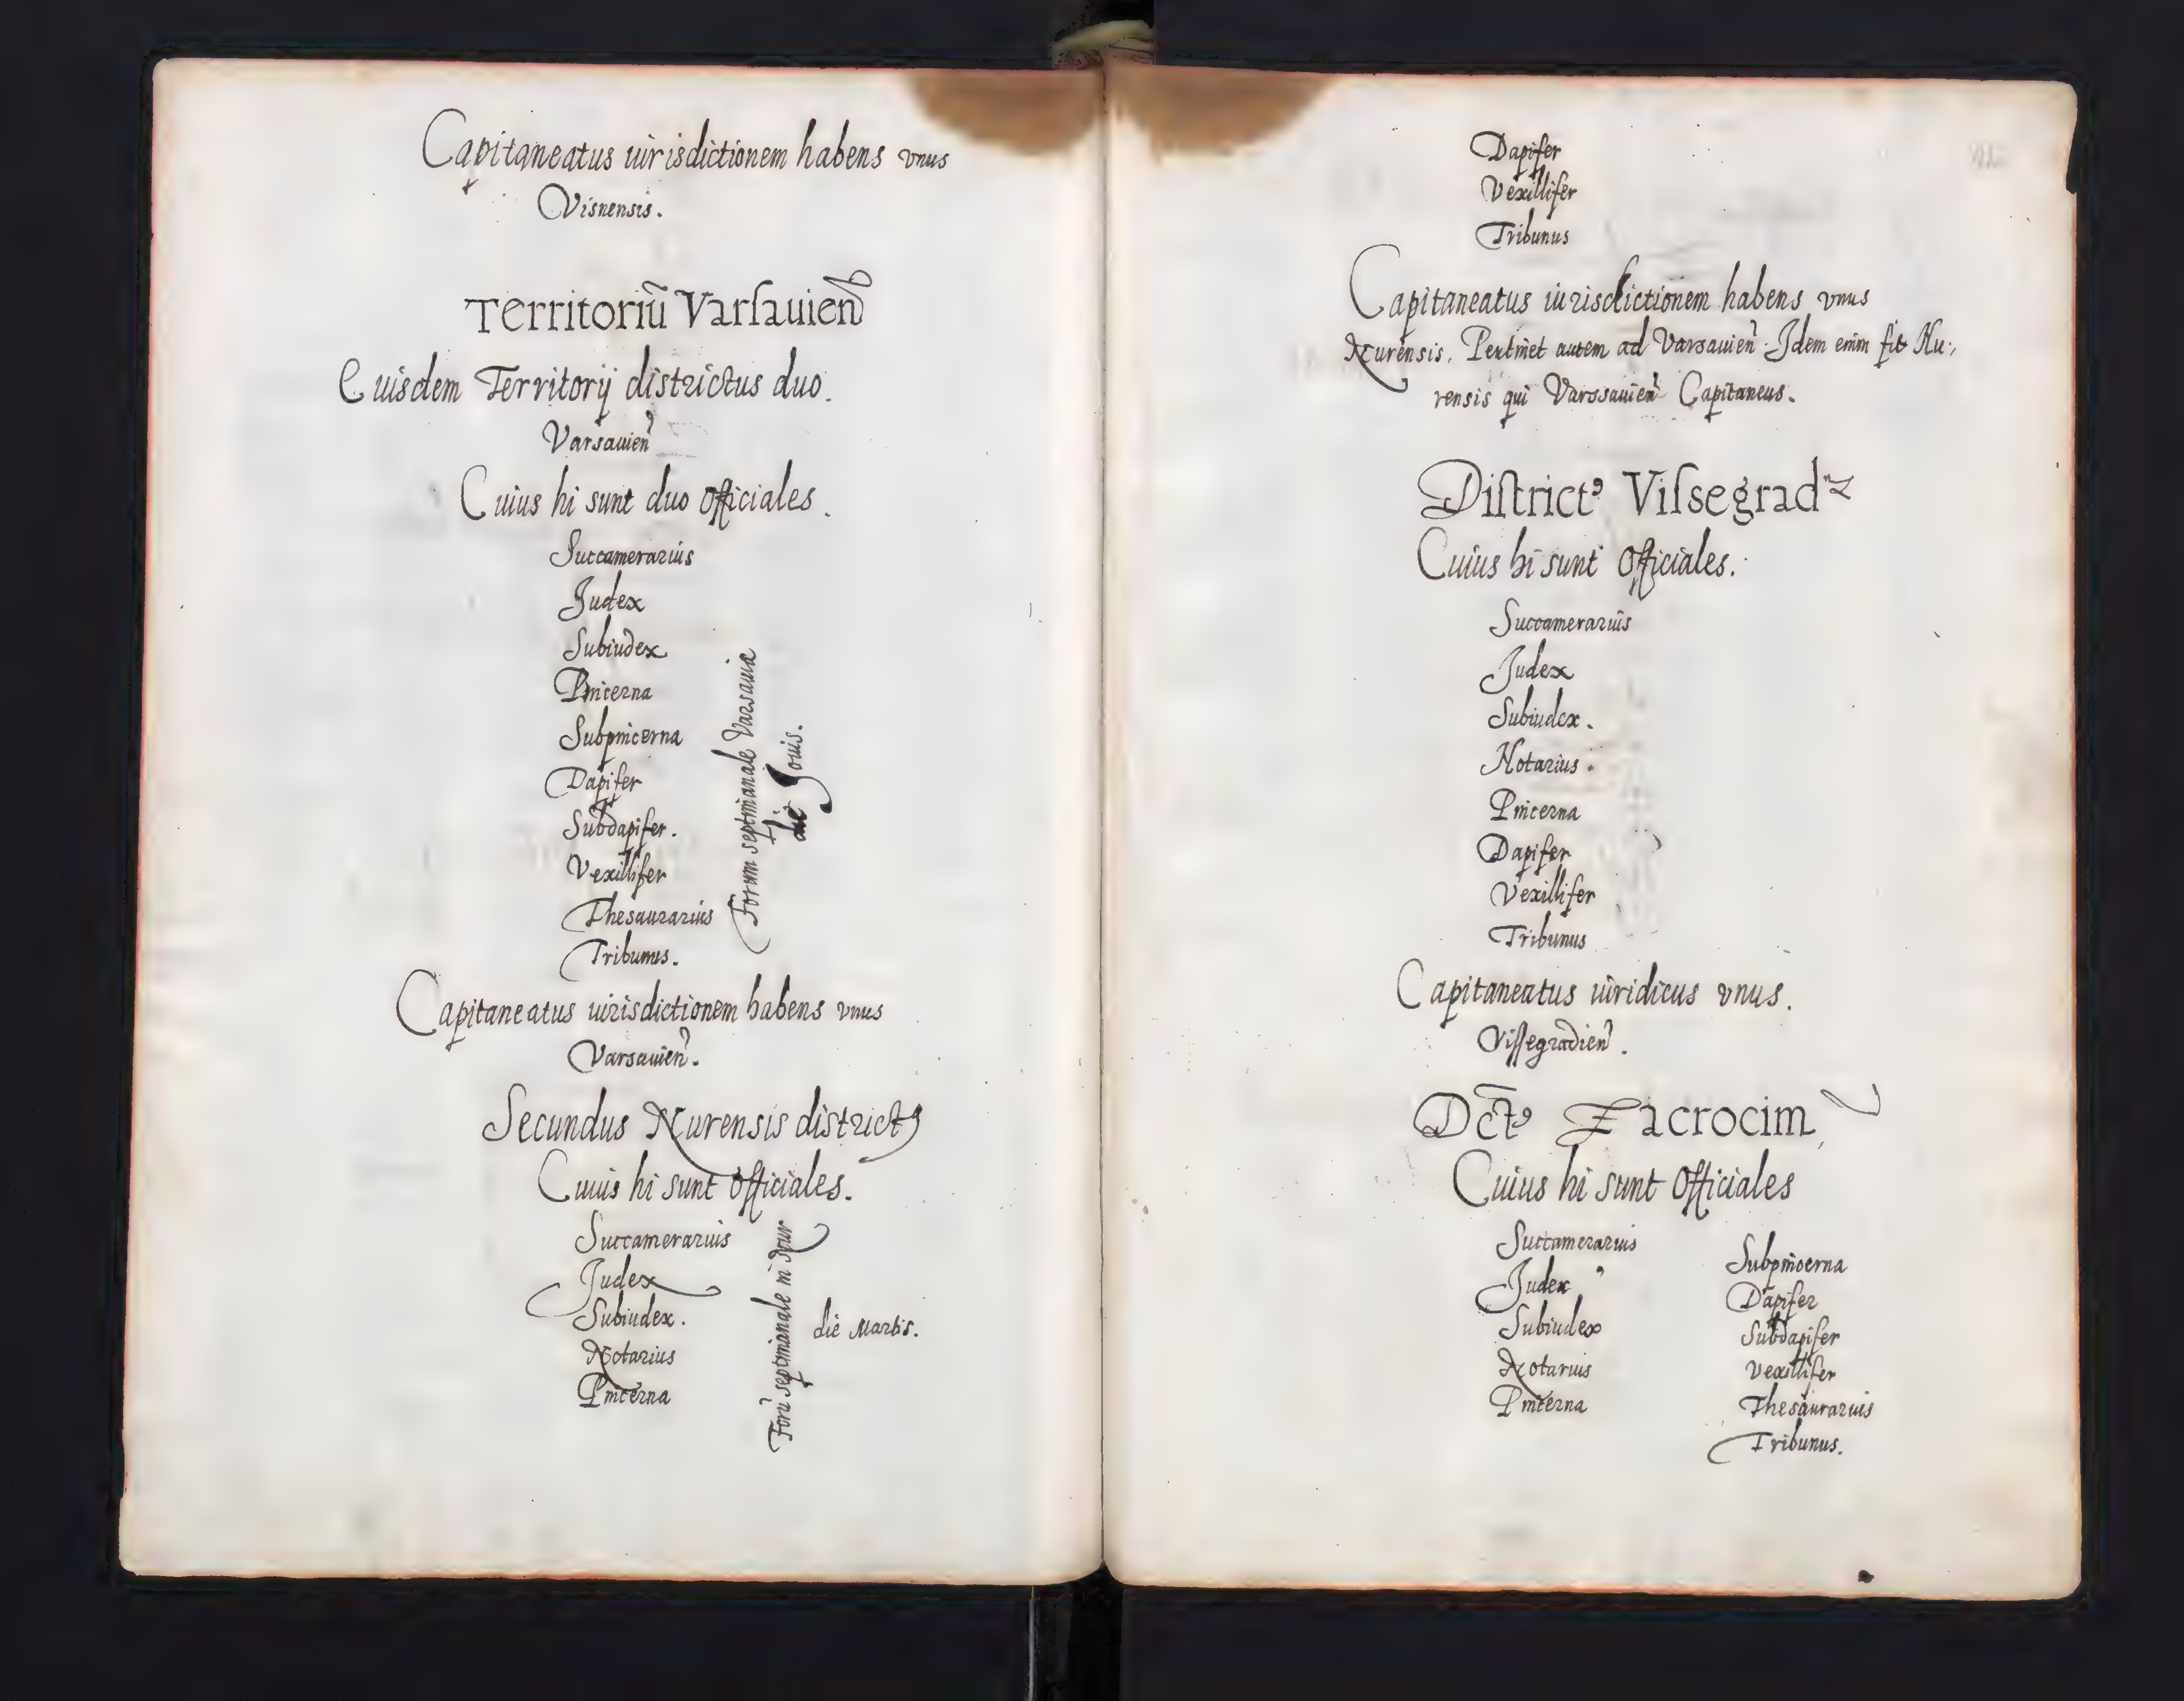 Capitaneatus iurisdictionem habens vnus
Visnensis.
Territoriũ Varſauien̄
Euisdem Territorij districtus duo.
Varsauien̉
Cuius hi sunt duo Officiales.
Succamerarius
Judex
Subiudex
Pincerna
Subpincerna
Dapifer
Subdapifer.
Vexillifer
Thesaurarius
Tribunus.
Forum septimanale Varsauiæ
die Jouis.
Capitaneatus iurisdictionem habens vnus
Varsauien̉.
Secundus Nurensis districtꝰ
Cuius hi sunt Officiales.
Succamerarius
Judex
Subiudex.
Notarius
Pincerna
Forũ septimanale in Nur
die Martis.
Dapifer
Vexillifer
Tribunus
Capitaneatus iurisdictionem habens vnus
Nurensis. Pertinet autem ad Varsauien̉. Idem enim fit Nu:,
rensis qui Varssauien̉ Capitaneus.
Diſtrictꝰ Viſsegrad
Cuius hi sunt Officiales.
Succamerarius
Judex
Subiudex.
Notarius.
Pincerna
Dapifer
Vexillifer
Tribunus
Capitaneatus iuridicus vnus.
Viſsegradien̉.
Dc̄tꝰ Zacrocim
Cuius hi sunt Officiales
Succamerarius
Judex
Subiudex
Notarius
Pincerna
Subpincerna
Dapifer
Subdapifer
Vexillifer
Thesaurarius
Tribunus.